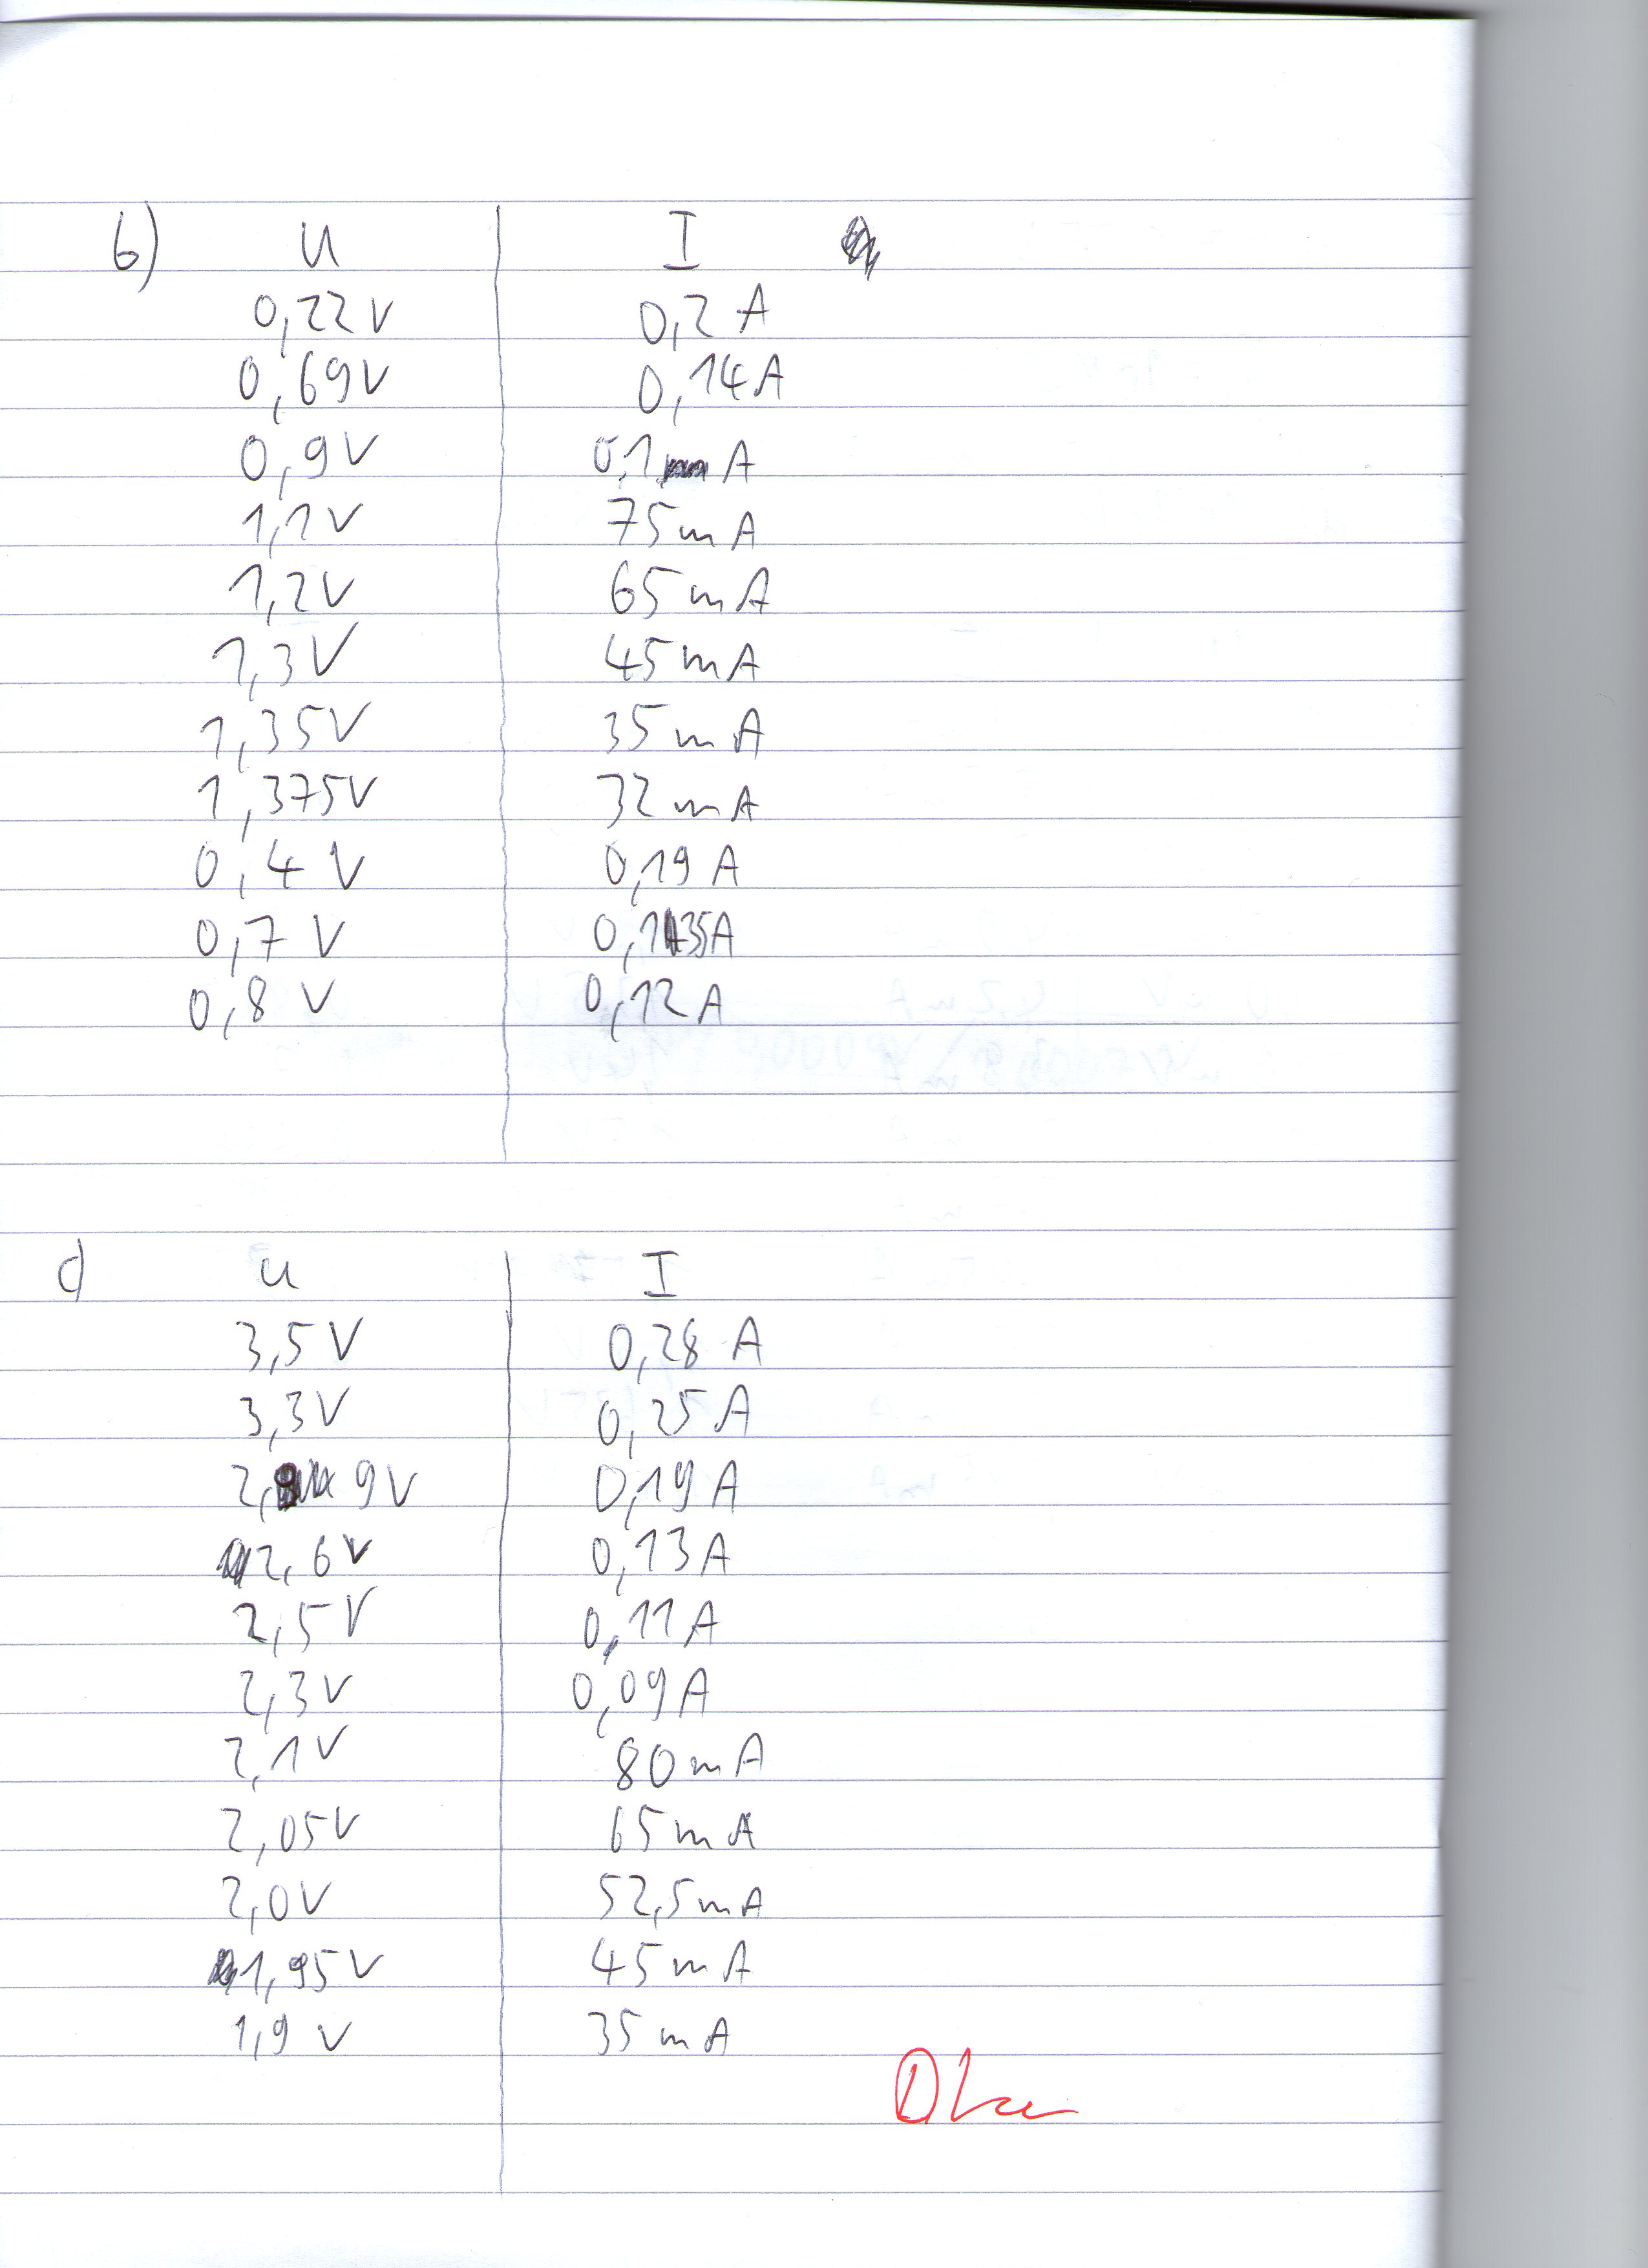 b) U I
0,22 V 0,2 A
0,69 V 0,14 A
0,9 V 0,1 A
1,1 V 75 mA
1,2 V 65 mA
1,3 V 45 mA
1,35 V 35 mA
1,375 V 32 mA
0,4 V 0,19 A
0,7 V 0,135 A
0,8 V 0,12 A
c) U I
3,5 V 0,28 A
3,3 V 0,25 A
2,9 V 0,19 A
2,6 V 0,13 A
2,5 V 0,11 A
2,3 V 0,09 A
2,1 V 80 mA
2,05 V 65 mA
2,0 V 52,5 mA
1,95 V 45 mA
1,9 V 35 mA